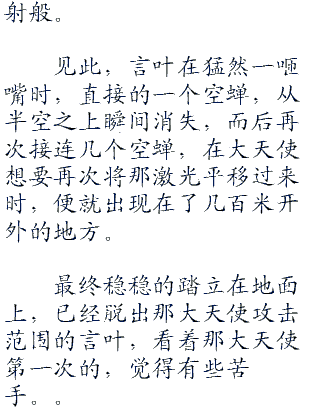 射般。
见此，言叶在猛然一咂
嘴时，直接的一个空蝉，从
半空之上瞬间消失，而后再
次接连几个空蝉，在大天使
想要再次将那激光平移过来
时，便就出现在了几百米开
外的地方。
最终稳稳的踏立在地面
上，已经脱出那大天使攻击
范围的言叶，看着那大天使
第一次的，觉得有些苦
手。。